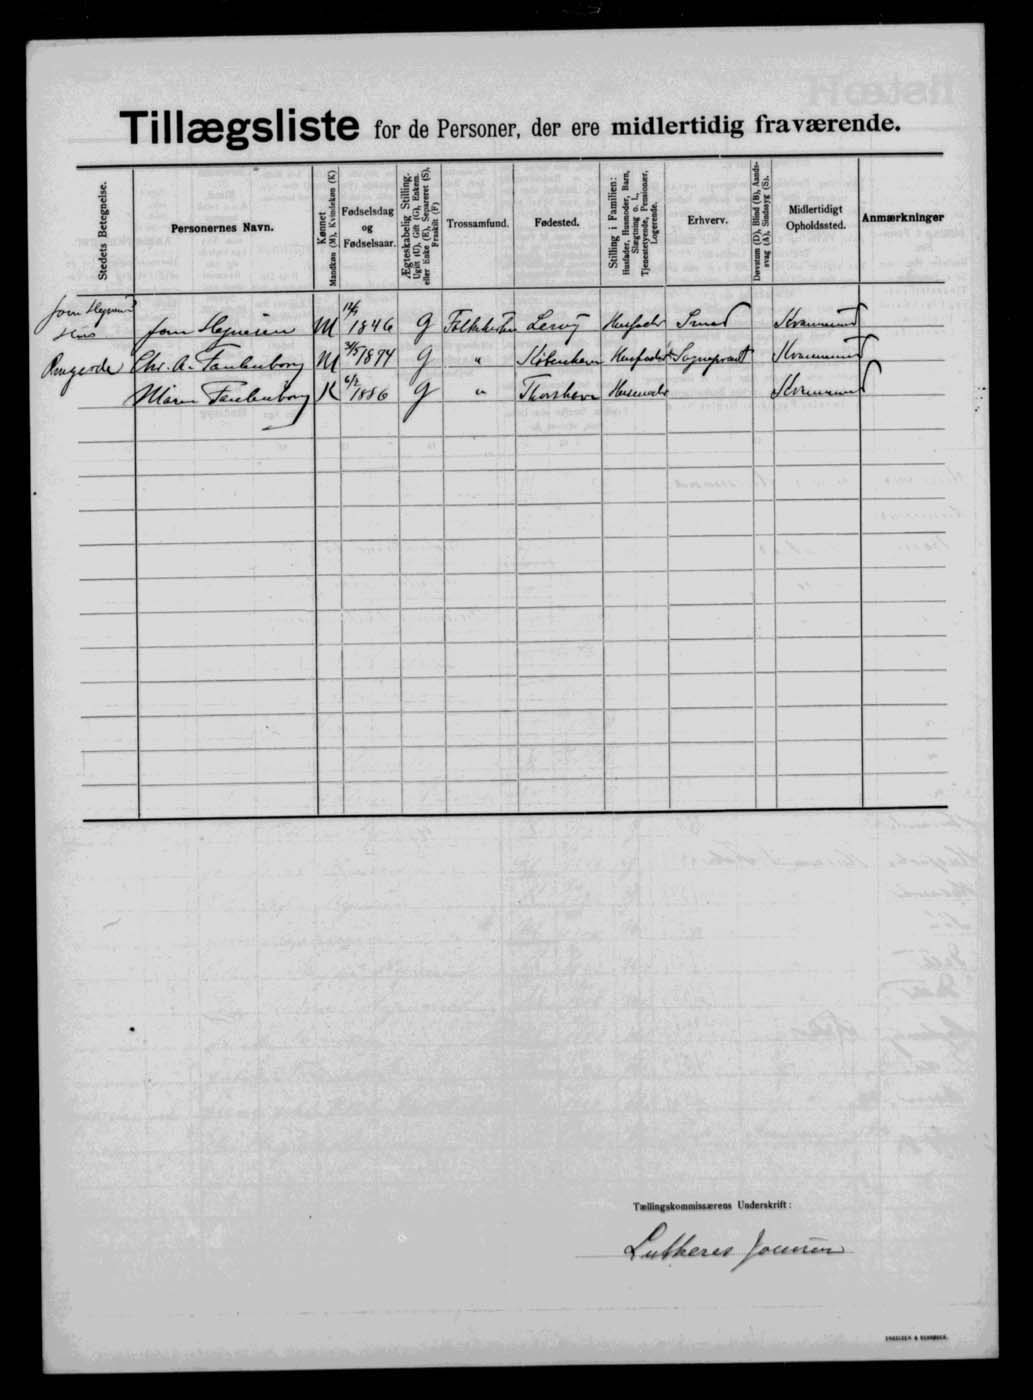 Tillægsliste for de Personer, der ere midlertidig fraværende.
Stedets Betegnelse.
Personernes Navn.
Kønnet
Mandkøn (M), Kvindekøn (K)
Fødselsdag
og
Fødselsaar.
Ægteskabelig Stilling.
Ugift (U), Gift (G), Enkem.
eller Enke (E), Separeret (S),
Fraskilt (F)
Trossamfund.
Fødested.
Stilling i Familien:
Husfader, Husmoder, Barn,
Slægtning o. l.,
Tjenestetyende, Pensionær,
Logerende.
Erhverv.
Døvstum (D), Blind (B), Aands-
svag (A), Sindssyg (S).
Midlertidigt
Opholdssted.
Anmærkninger
Hus Joen Hejnesen M 1846 G Folkekirken Lervig Husfader Smed Kvannesund
Chr. A. Faulenborg M 1874 G " København Husfader Sognepræst Kvannesund
Maren Faulenborg K 6/2 1886 G " Thorshavn Husmoder Kvannesund
Tællingskommissærens Underskrift:
Lutheres Joensen